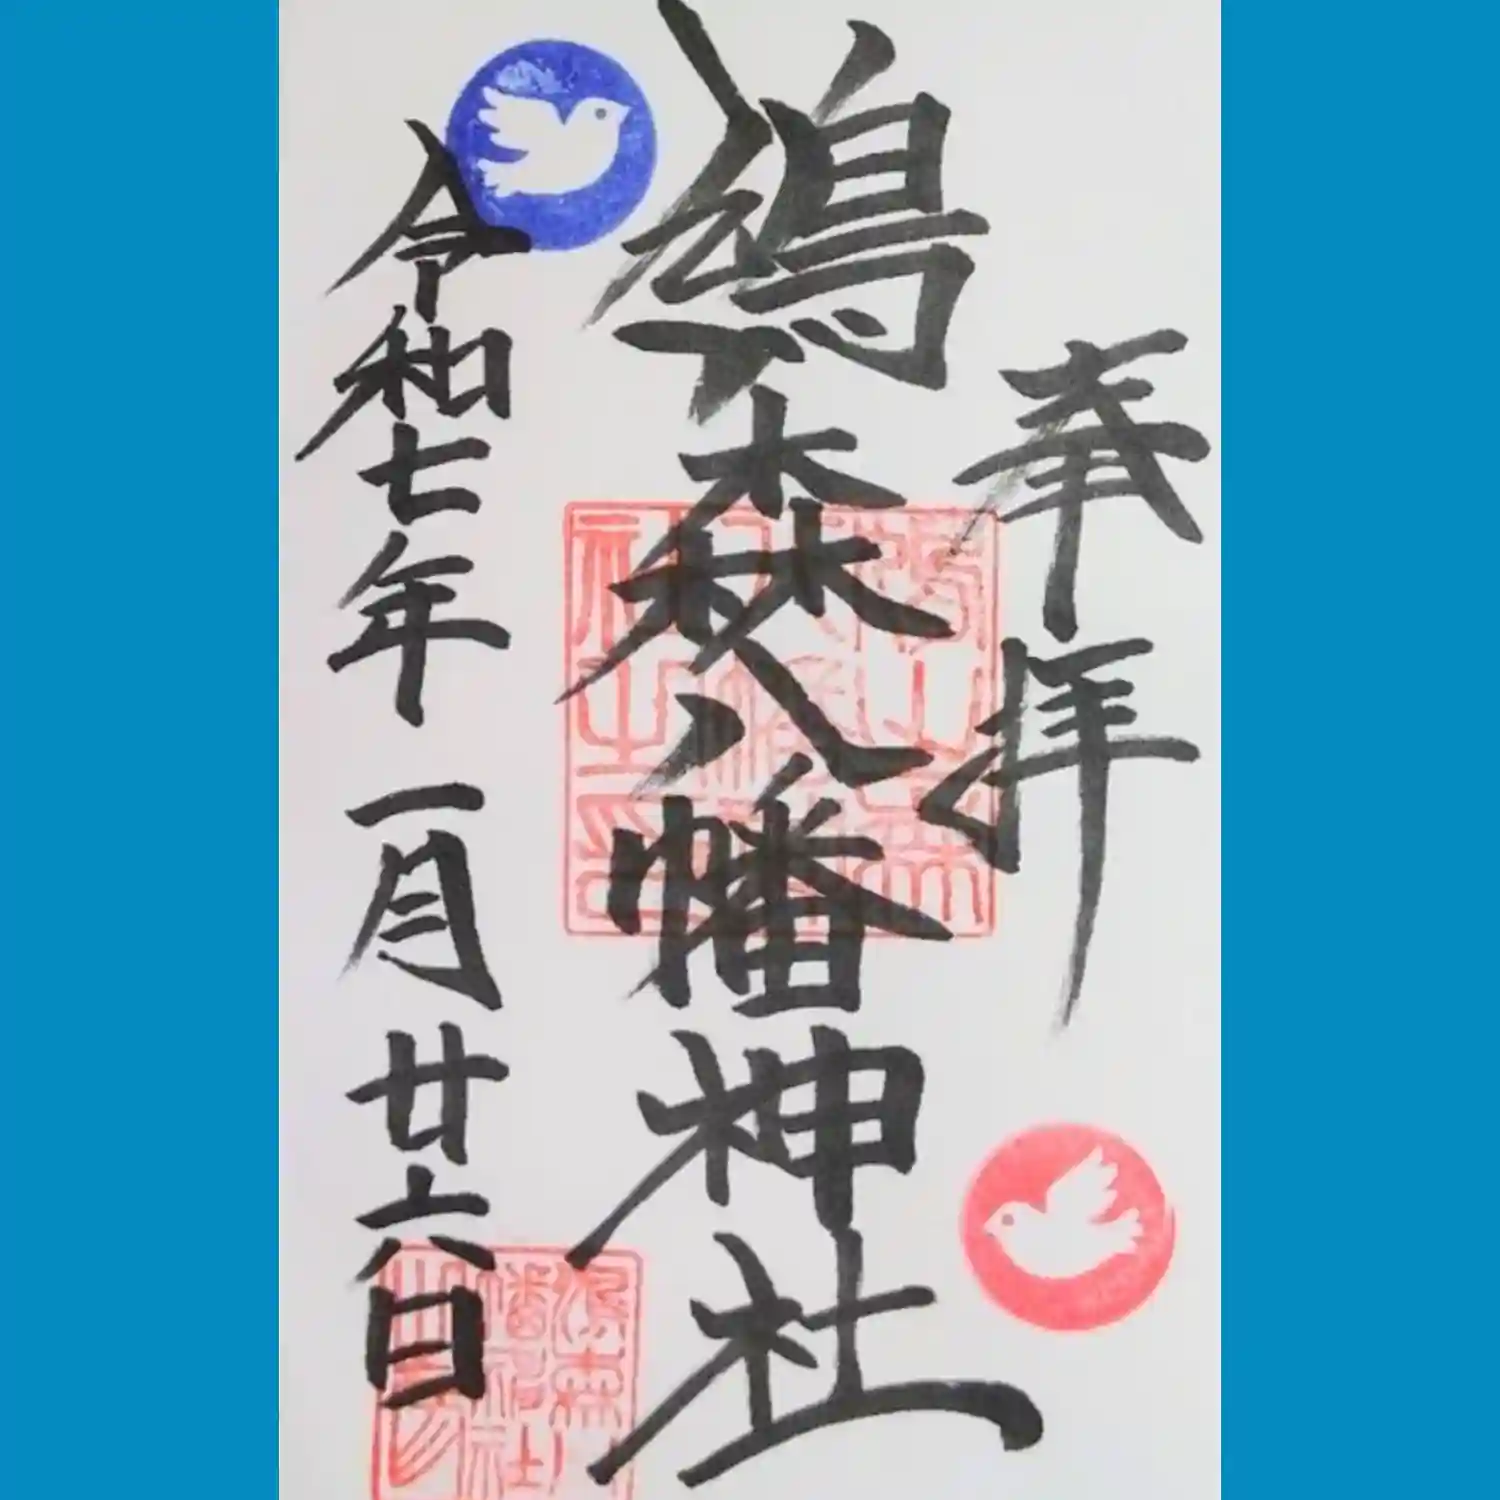 奉拝
鳩森八幡神社
令和七年一月廿六日